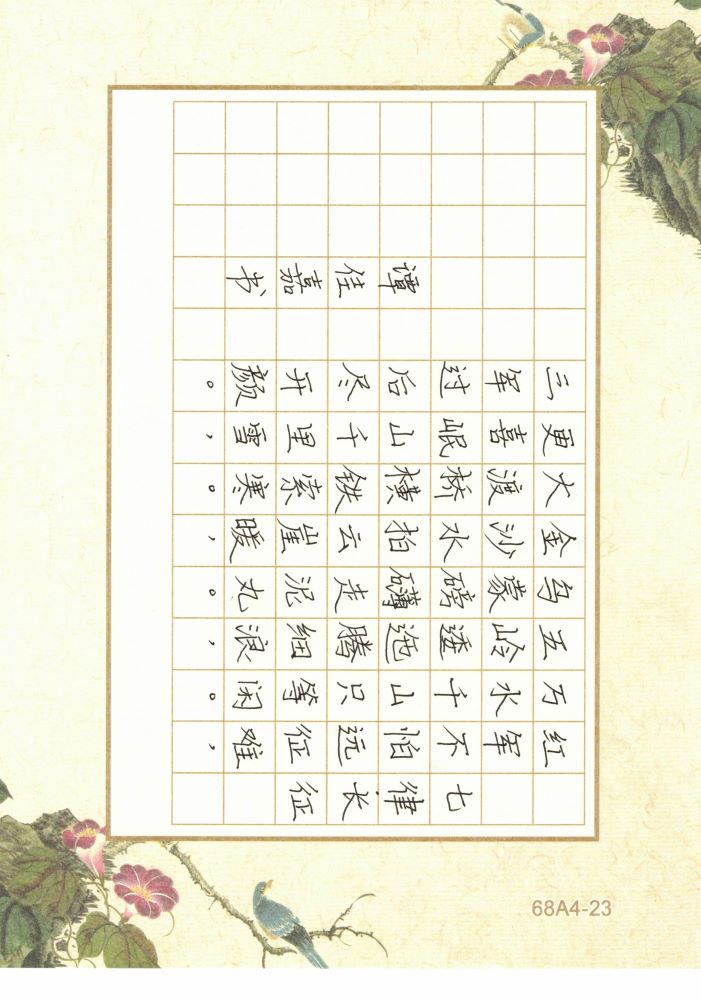 七律·长征
红军不怕远征难，
万水千山只等闲。
五岭逶迤腾细浪，
乌蒙磅礴走泥丸。
金沙水拍云崖暖，
大渡桥横铁索寒。
更喜岷山千里雪，
三军过后尽开颜。
谭佳嘉书
68A4-23